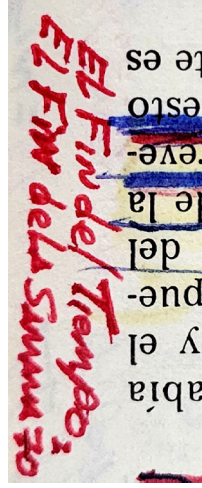 El Fin del Tiempo:
El Fin de la Semana 70
abía
y el
pue-
del
e la
reve-
esto
te es